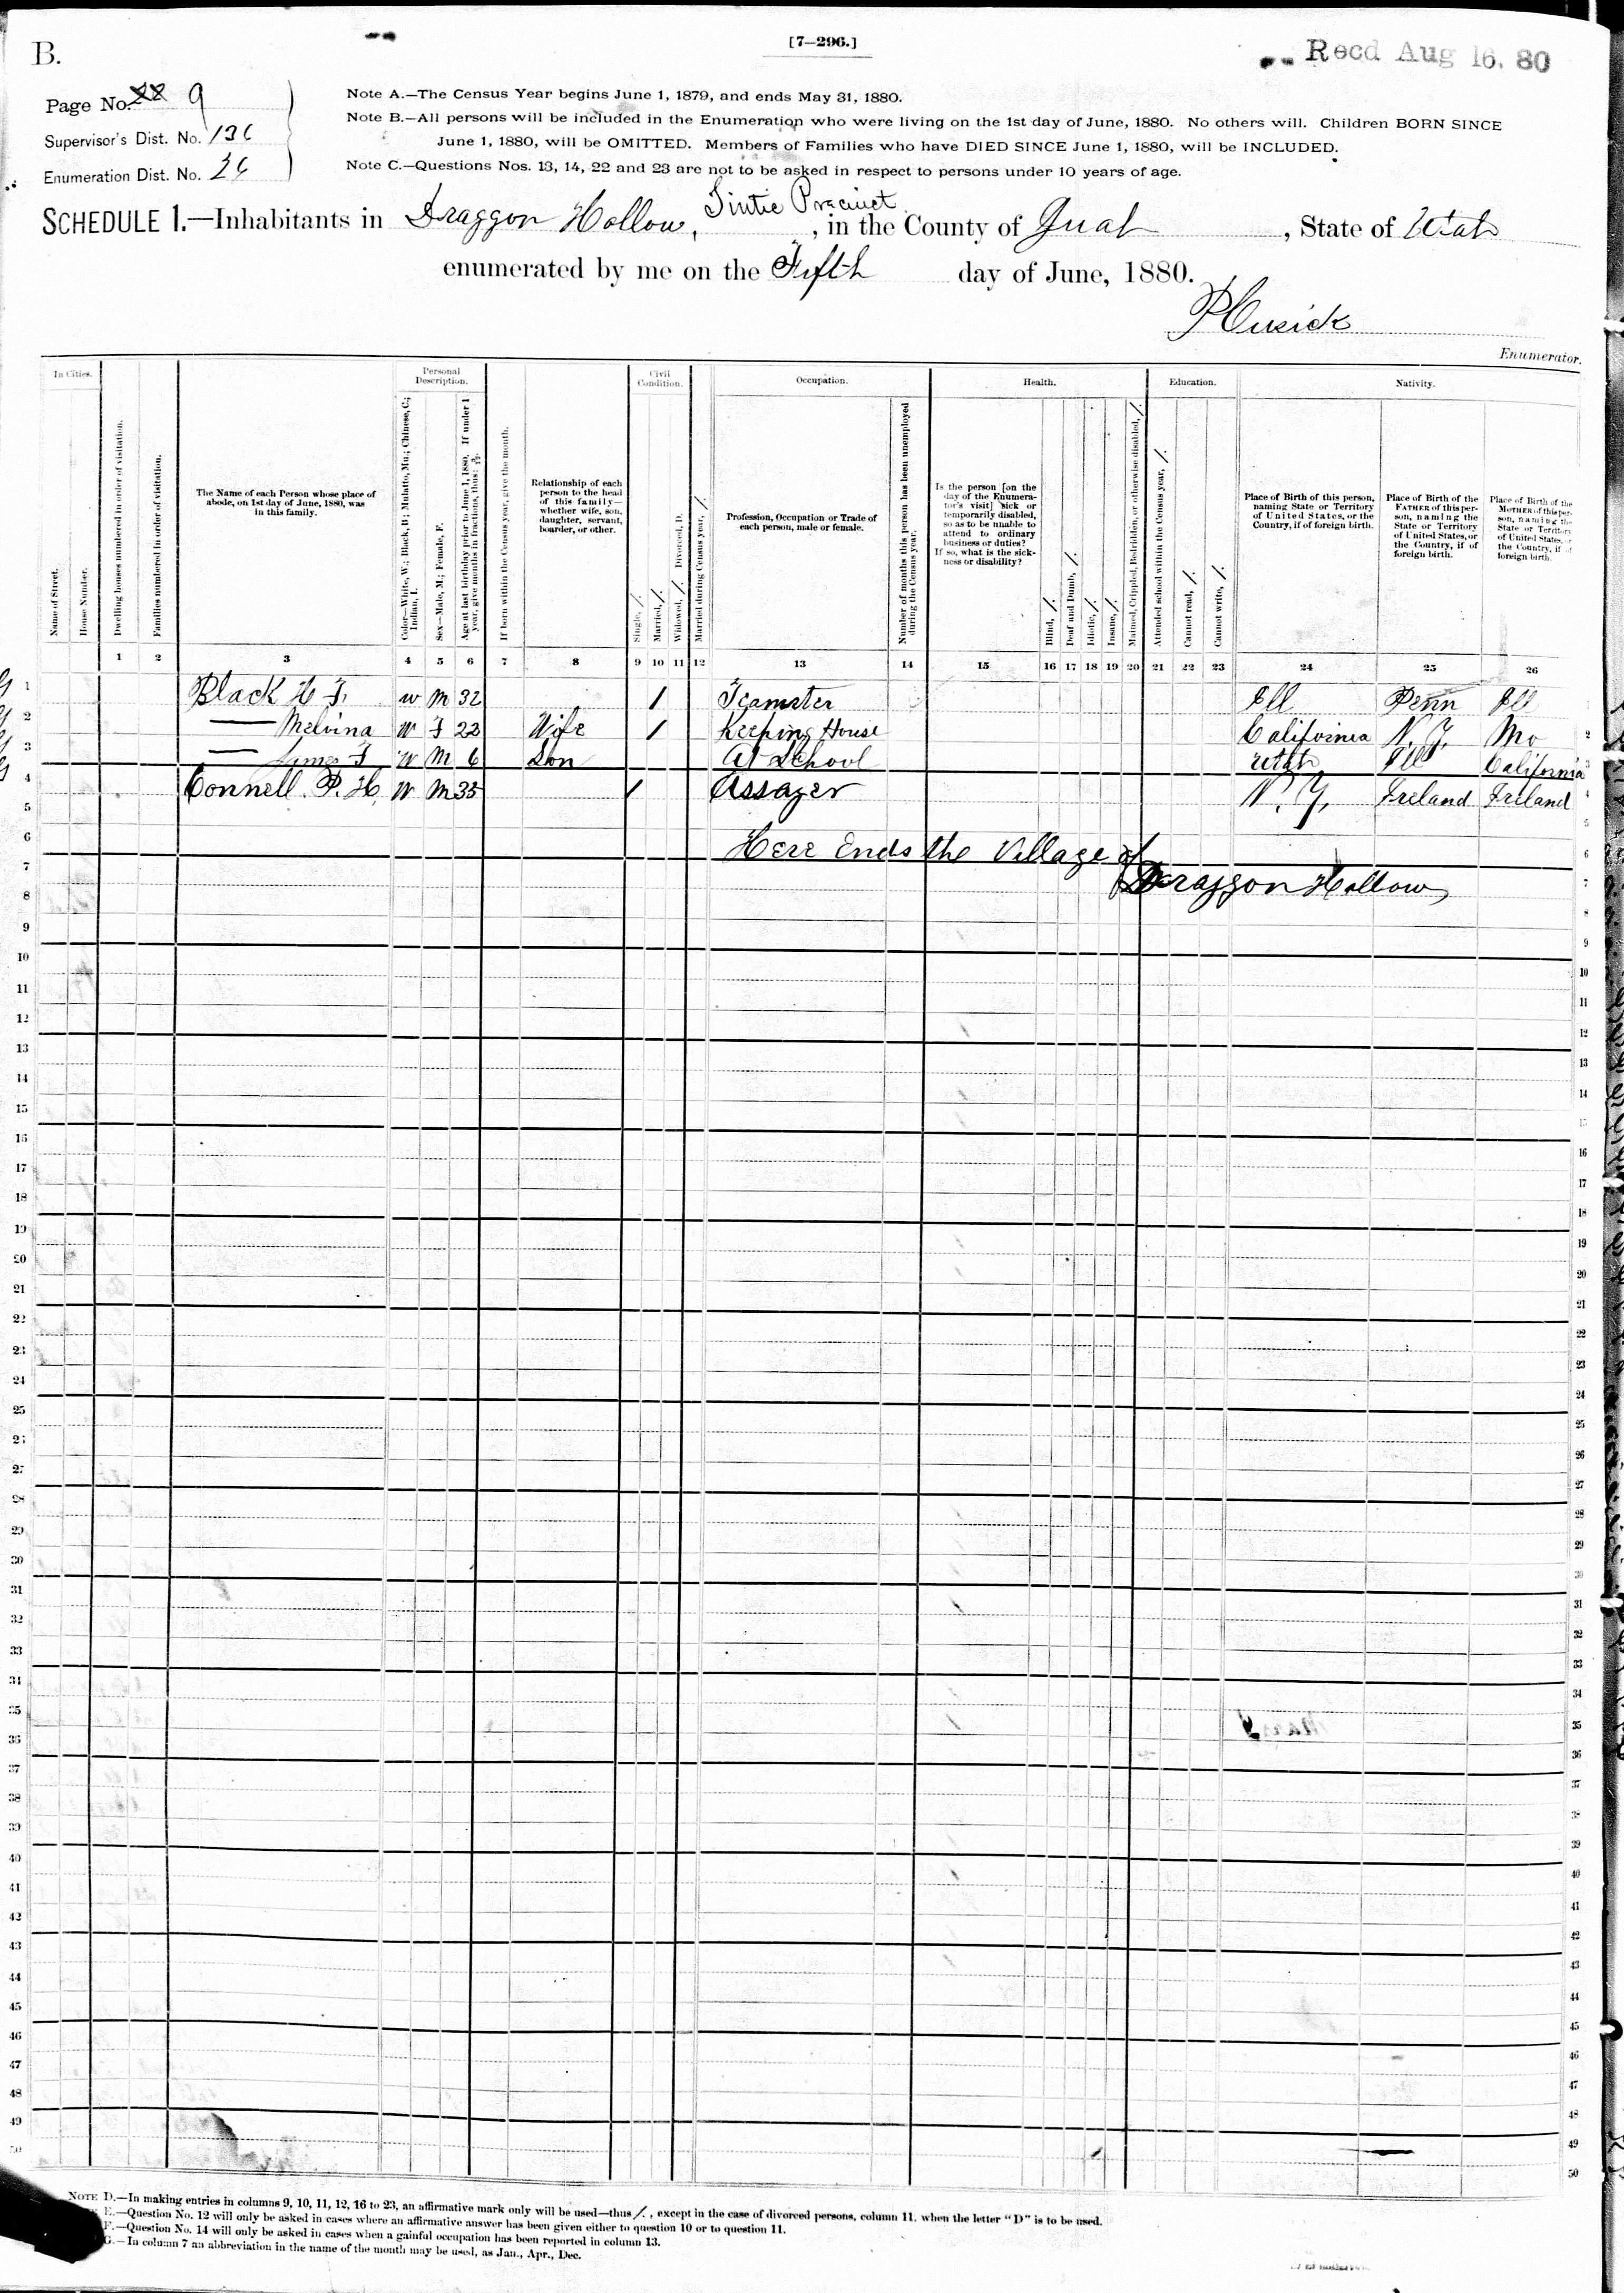 B.
[7–296.]
Recd Aug 16. 80
Page No. 9
Supervisor's Dist. No. 136
Enumeration Dist. No. 26
Note A.—The Census Year begins June 1, 1879, and ends May 31, 1880.
Note B.—All persons will be included in the Enumeration who were living on the 1st day of June, 1880. No others will. Children BORN SINCE
June 1, 1880, will be OMITTED. Members of Families who have DIED SINCE June 1, 1880, will be INCLUDED.
Note C.—Questions Nos. 13, 14, 22 and 23 are not to be asked in respect to persons under 10 years of age.
SCHEDULE 1.—Inhabitants in Draggon Hollow, Tintic Precinct, in the County of Juab, State of Utah
enumerated by me on the Fifth day of June, 1880.
P Cusick
Enumerator.
In Cities.
Personal Description.
Civil Condition.
Occupation.
Health.
Education.
Nativity.
Name of Street.
House Number.
Dwelling houses numbered in order of visitation.
Families numbered in order of visitation.
The Name of each Person whose place of abode, on 1st day of June, 1880, was in this family.
Color—White, W.; Black, B.; Mulatto, Mu.; Chinese, C.; Indian, I.
Sex—Male, M.; Female, F.
Age at last birthday prior to June 1, 1880. If under 1 year, give months in fractions, thus: 3/12.
If born within the Census year, give the month.
Relationship of each person to the head of this family—whether wife, son, daughter, servant, boarder, or other.
Single, /.
Married, /.
Widowed, /. Divorced, D.
Married during Census year, /.
Profession, Occupation or Trade of each person, male or female.
Number of months this person has been unemployed during the Census year.
Is the person [on the day of the Enumerator's visit] sick or temporarily disabled, so as to be unable to attend to ordinary business or duties? If so, what is the sickness or disability?
Blind, /.
Deaf and Dumb, /.
Idiotic, /.
Insane, /.
Maimed, Crippled, Bedridden, or otherwise disabled, /.
Attended school within the Census year, /.
Cannot read, /.
Cannot write, /.
Place of Birth of this person, naming State or Territory of United States, or the Country, if of foreign birth.
Place of Birth of the FATHER of this person, naming the State or Territory of United States, or the Country, if of foreign birth.
Place of Birth of the MOTHER of this person, naming the State or Territory of United States, or the Country, if of foreign birth.
1 2 3 4 5 6 7 8 9 10 11 12 13 14 15 16 17 18 19 20 21 22 23 24 25 26
1 Black H F. W M 32 / Teamster Ill Penn Ill
2 — Melvina W F 22 Wife / Keeping House California N.Y. Mo
3 — James F W M 6 Son At School Utah Ill California
4 Connell P. H. W M 35 / Assayer N.Y. Ireland Ireland
5
6 Here Ends the Village of
7 Draggon Hollow
8
9
10
11
12
13
14
15
16
17
18
19
20
21
22
23
24
25
26
27
28
29
30
31
32
33
34
35
36
37
38
39
40
41
42
43
44
45
46
47
48
49
50
NOTE D.—In making entries in columns 9, 10, 11, 12, 16 to 23, an affirmative mark only will be used—thus /., except in the case of divorced persons, column 11, when the letter "D" is to be used.
E.—Question No. 12 will only be asked in cases where an affirmative answer has been given either to question 10 or to question 11.
F.—Question No. 14 will only be asked in cases when a gainful occupation has been reported in column 13.
G.—In column 7 an abbreviation in the name of the month may be used, as Jan., Apr., Dec.